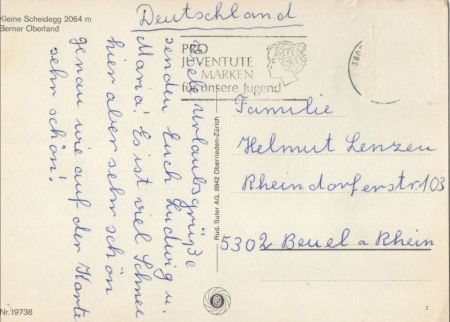 Kleine Scheidegg 2064 m
Berner Oberland
Deutschland
PRO
JUVENTUTE
MARKEN
für unsere Jugend
Urlaubsgrüße
senden Euch Ludwig u.
Maria! Es ist viel Schnee
hier aber sehr schön
genau wie auf der Karte
sehr schön!
Rud. Suter AG, 8942 Oberrieden-Zürich
Familie
Helmut Lenzen
Rheindorferstr 103
5302 Beuel a Rhein
Nr. 19738